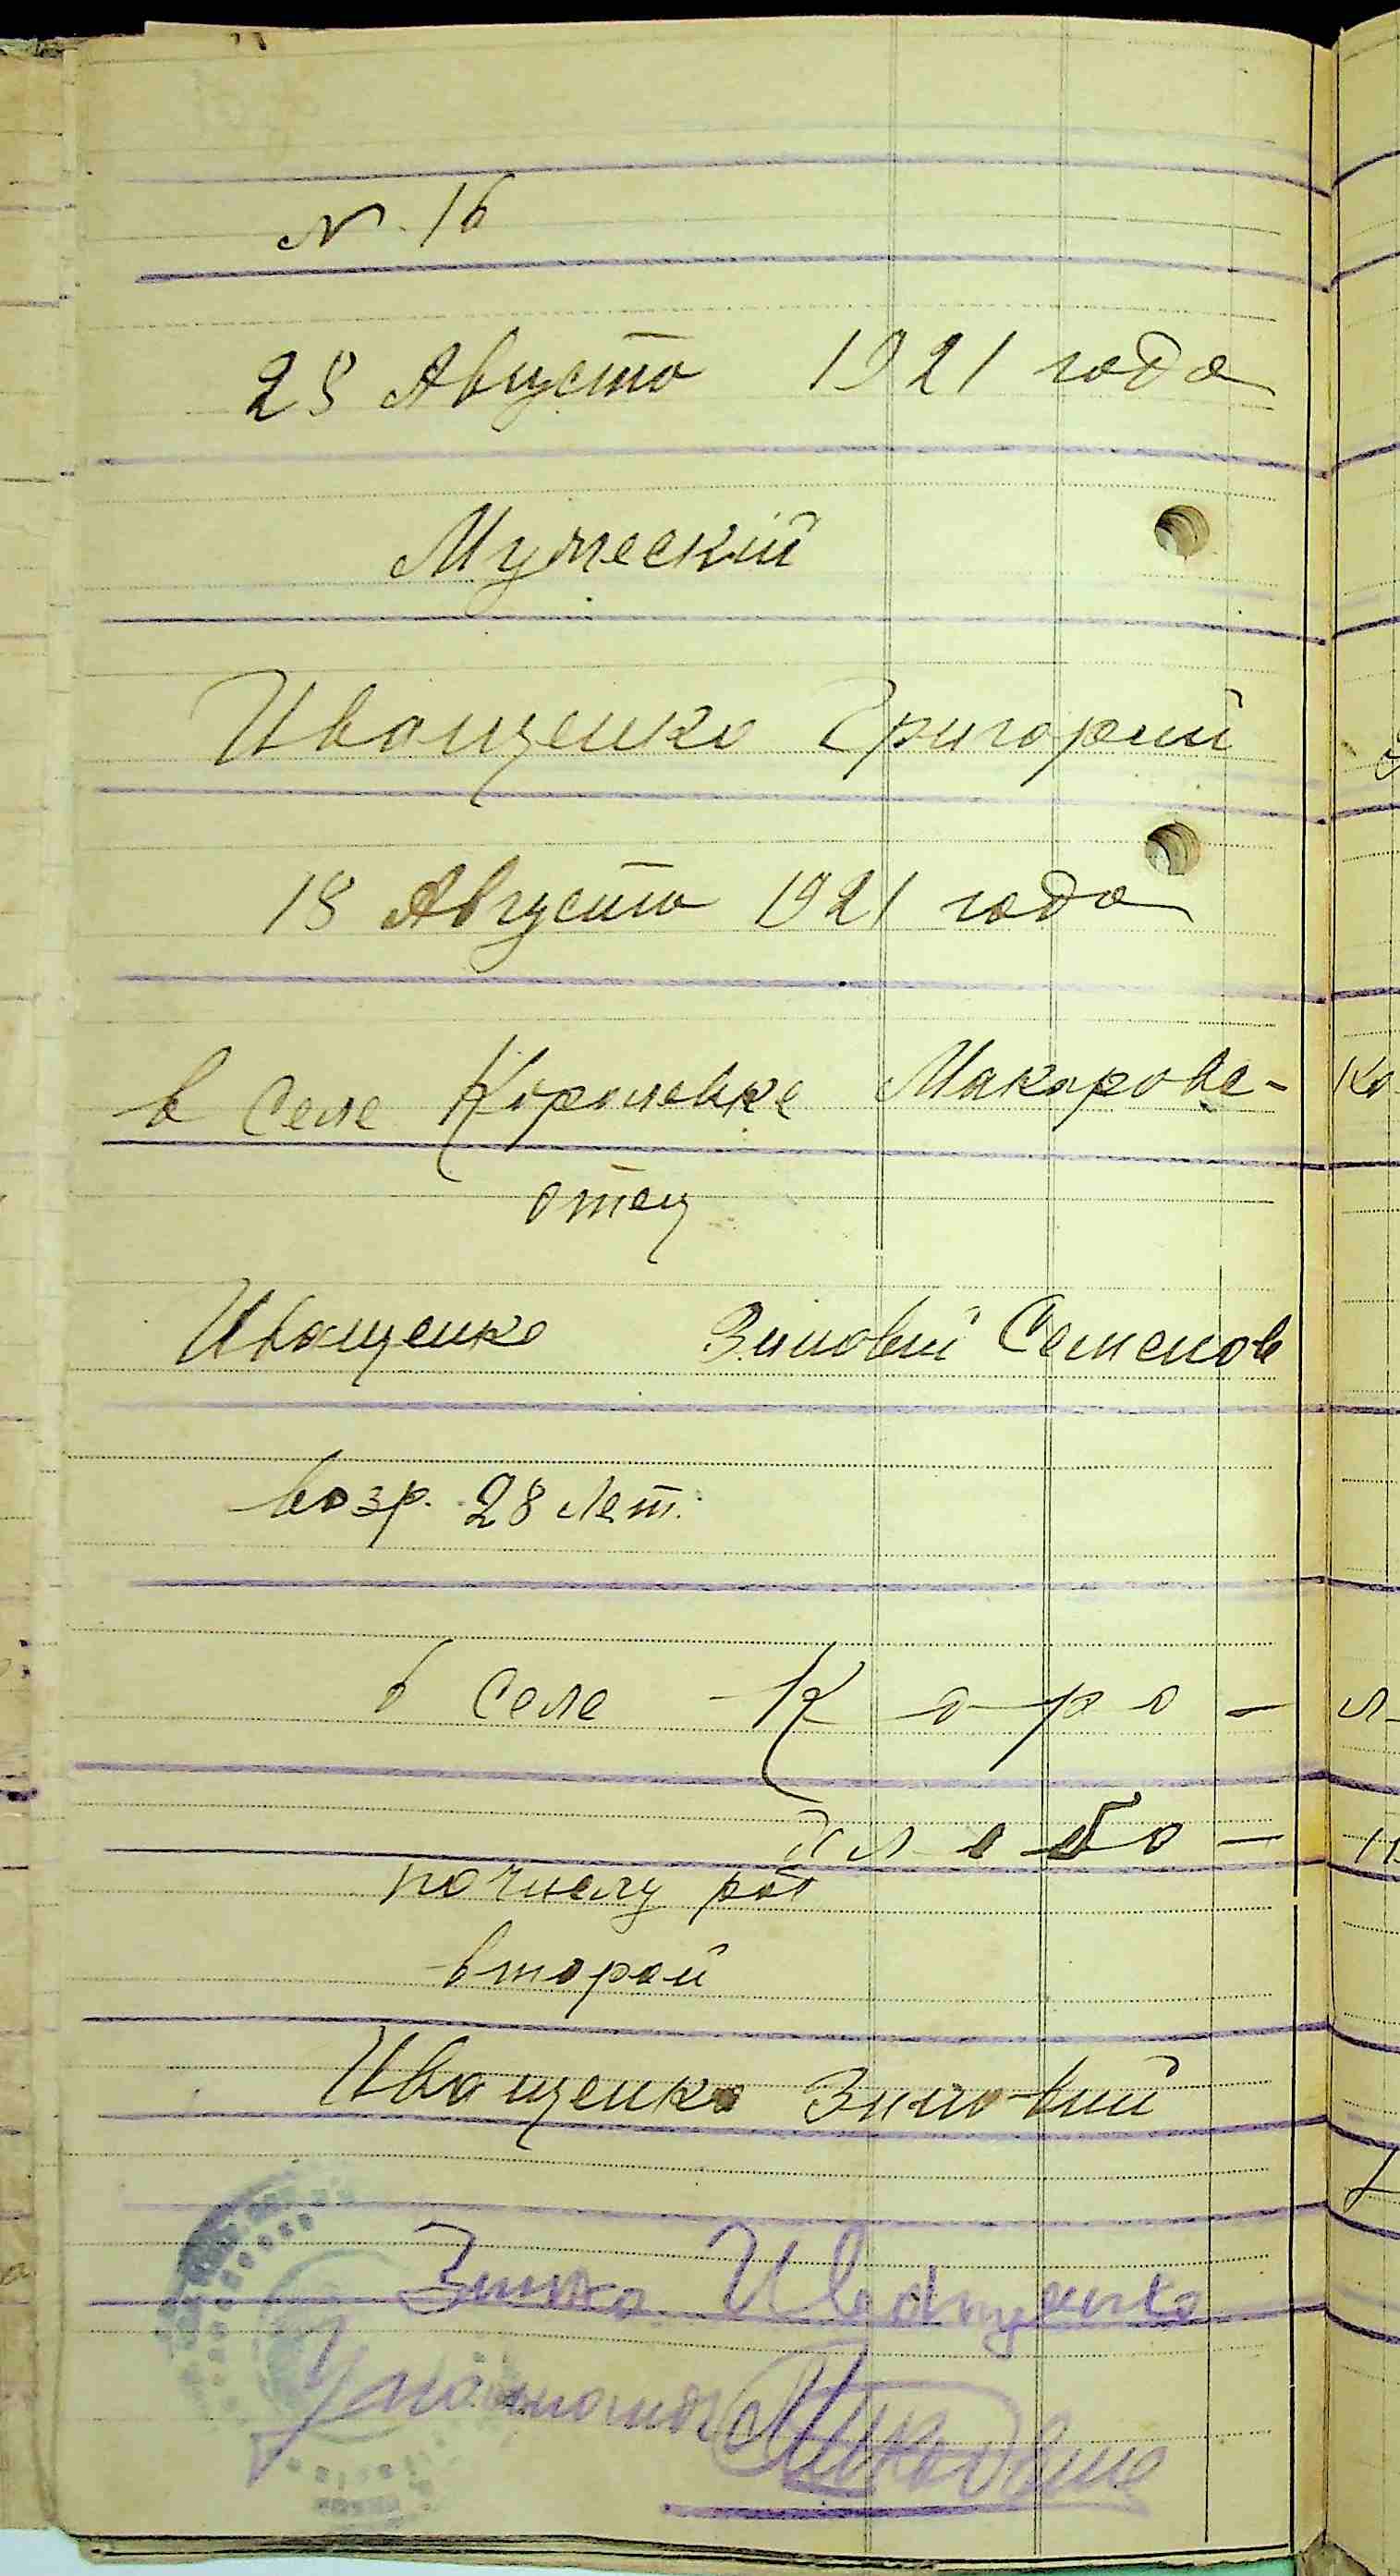 N. 16
28 Августа 1921 года
Мужеский
Иващенко Григорий
18 Августа 1921 года
в Селе Королевке Макаровс-
отец
Иващенко Зиновий Семенов
возр. 28 лет.
в Селе Коро-
хлебо-
по числу
второй
Иващенко Зиновий
Зинько Иващенко